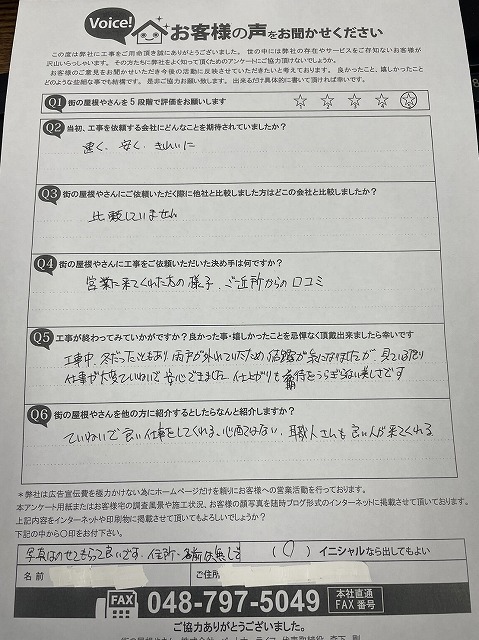 Voice! お客様の声をお聞かせください
この度は弊社に工事をご用命頂き誠にありがとうございました。世の中には弊社の存在やサービスをご存知ないお客様が
沢山いらっしゃいます。その方たちに弊社をよく知って頂くためのアンケートにご協力頂けないでしょうか。
お客様のご意見をお聞かせいただき今後の活動に反映させていただきたいと考えております。良かったこと、嬉しかったこと
どのような些細な事でも結構です。是非ご協力お願い致します。出来るだけ具体的に書いて頂ければ幸いです。
Q1 街の屋根やさんを5段階で評価をお願いします ☆1 ☆2 ☆3 ☆4 ☆5
Q2 当初、工事を依頼する会社にどんなことを期待されていましたか?
速く、安く、きれいに
Q3 街の屋根やさんにご依頼いただく際に他社と比較しました方はどこの会社と比較しましたか?
比較していません
Q4 街の屋根やさんに工事をご依頼いただいた決め手は何ですか?
営業に来てくれた方の様子、ご近所からの口コミ
Q5 工事が終わってみていかがですか?良かった事・嬉しかったことを忌憚なく頂戴出来ましたら幸いです
工事中、冬だったこともあり雨戸が外れていたため結露が気になりましたが、見ている限り
仕事が大変ていねいで安心できました。仕上がりも期待をうらぎらない美しさです
Q6 街の屋根やさんを他の方に紹介するとしたらなんと紹介しますか?
ていねいで良い仕事をしてくれる、心配ではない、職人さんも良い人が来てくれる
*弊社は広告宣伝費を極力かけない為にホームページだけを頼りにお客様への営業活動を行っております。
本アンケート用紙またはお客様宅の調査風景や施工状況、お客様の顔写真を随時ブログ形式のインターネットに掲載させて頂いております。
上記内容をインターネットや印刷物に掲載させて頂いてもよろしいでしょうか?
下記の中から〇印をお付け下さい。
写真はのせてもらって良いです。住所・名前は無しで (〇) イニシャルなら出してもよい
名前 ご住所
FAX 048-797-5049 本社直通 FAX番号
ご協力ありがとうございました。